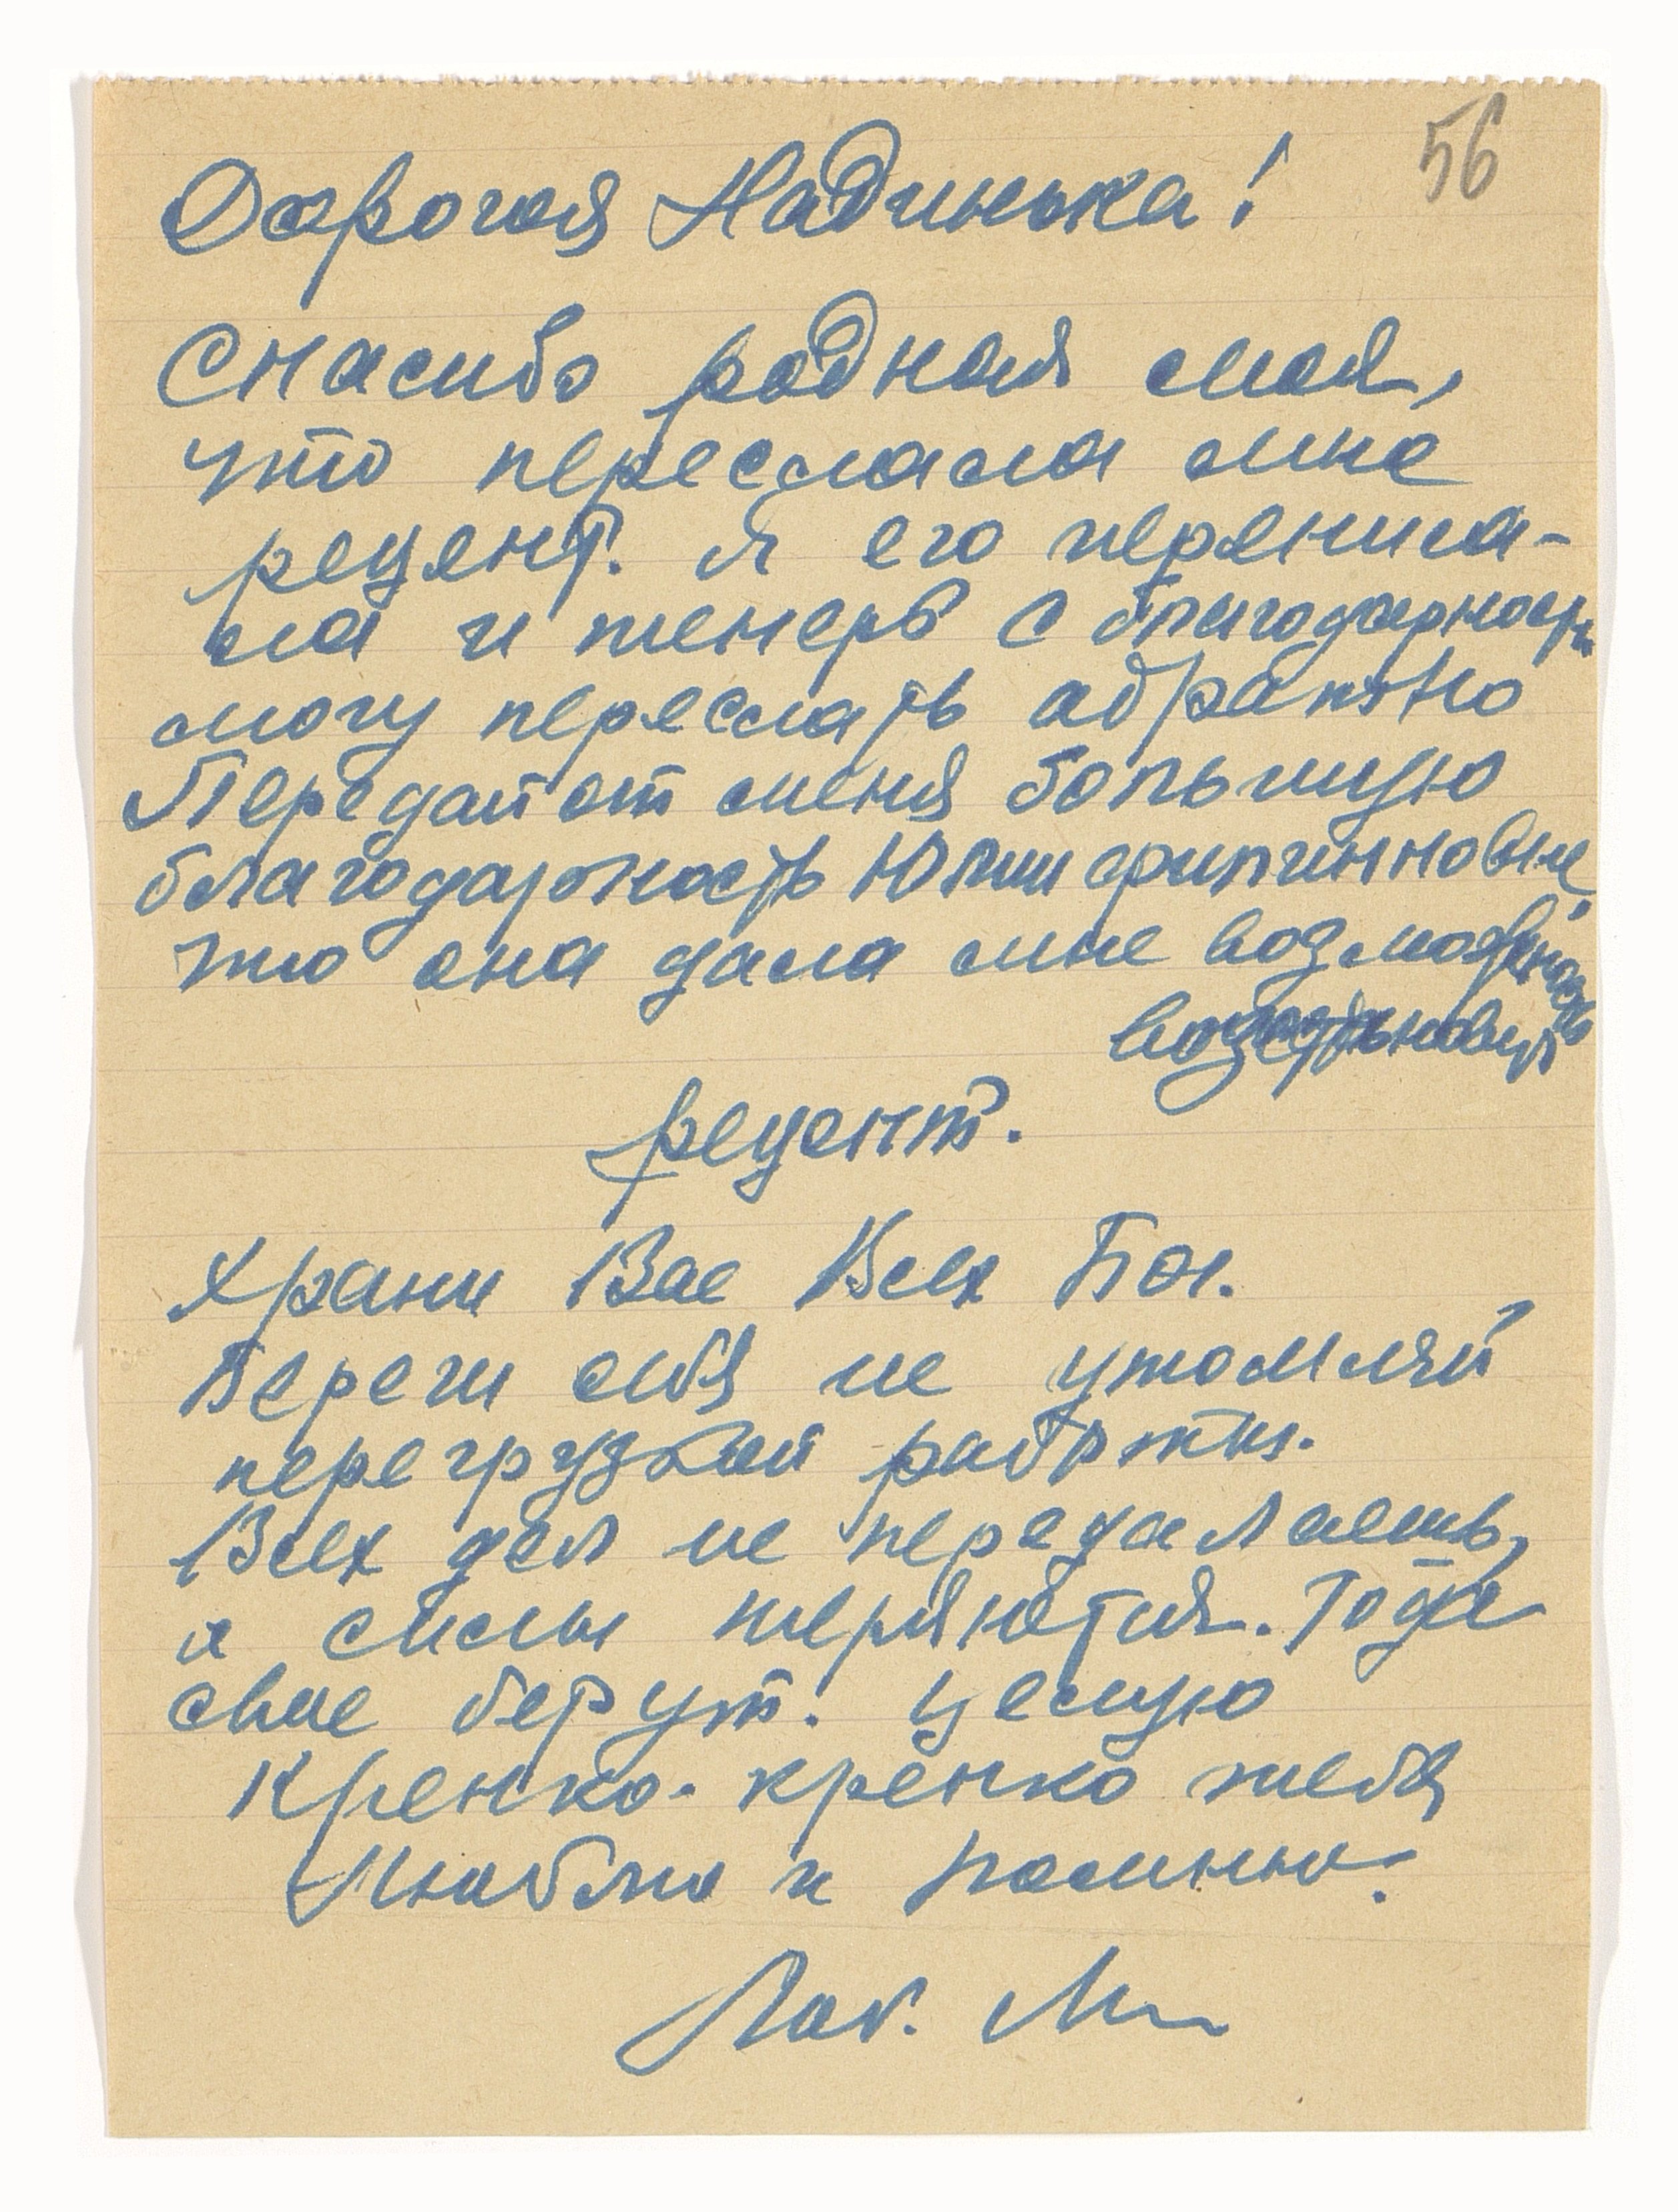 56
Дорогая Надинька!
Спасибо родная моя,
что переслала мне
рецепт. Я его переписа-
ла и теперь с благодарность
могу переслать абратно
Передай от меня большую
благодарность Юлии Филипповне,
что она дала мне возможность
рецепт.
Храни Вас Всех Бог.
Береги себя не утомляй
перегрузкой работы.
Всех дел не переделаешь,
а силы теряются. Года
свое берут. Целую
крепко-крепко тебя
Люблю и помню.